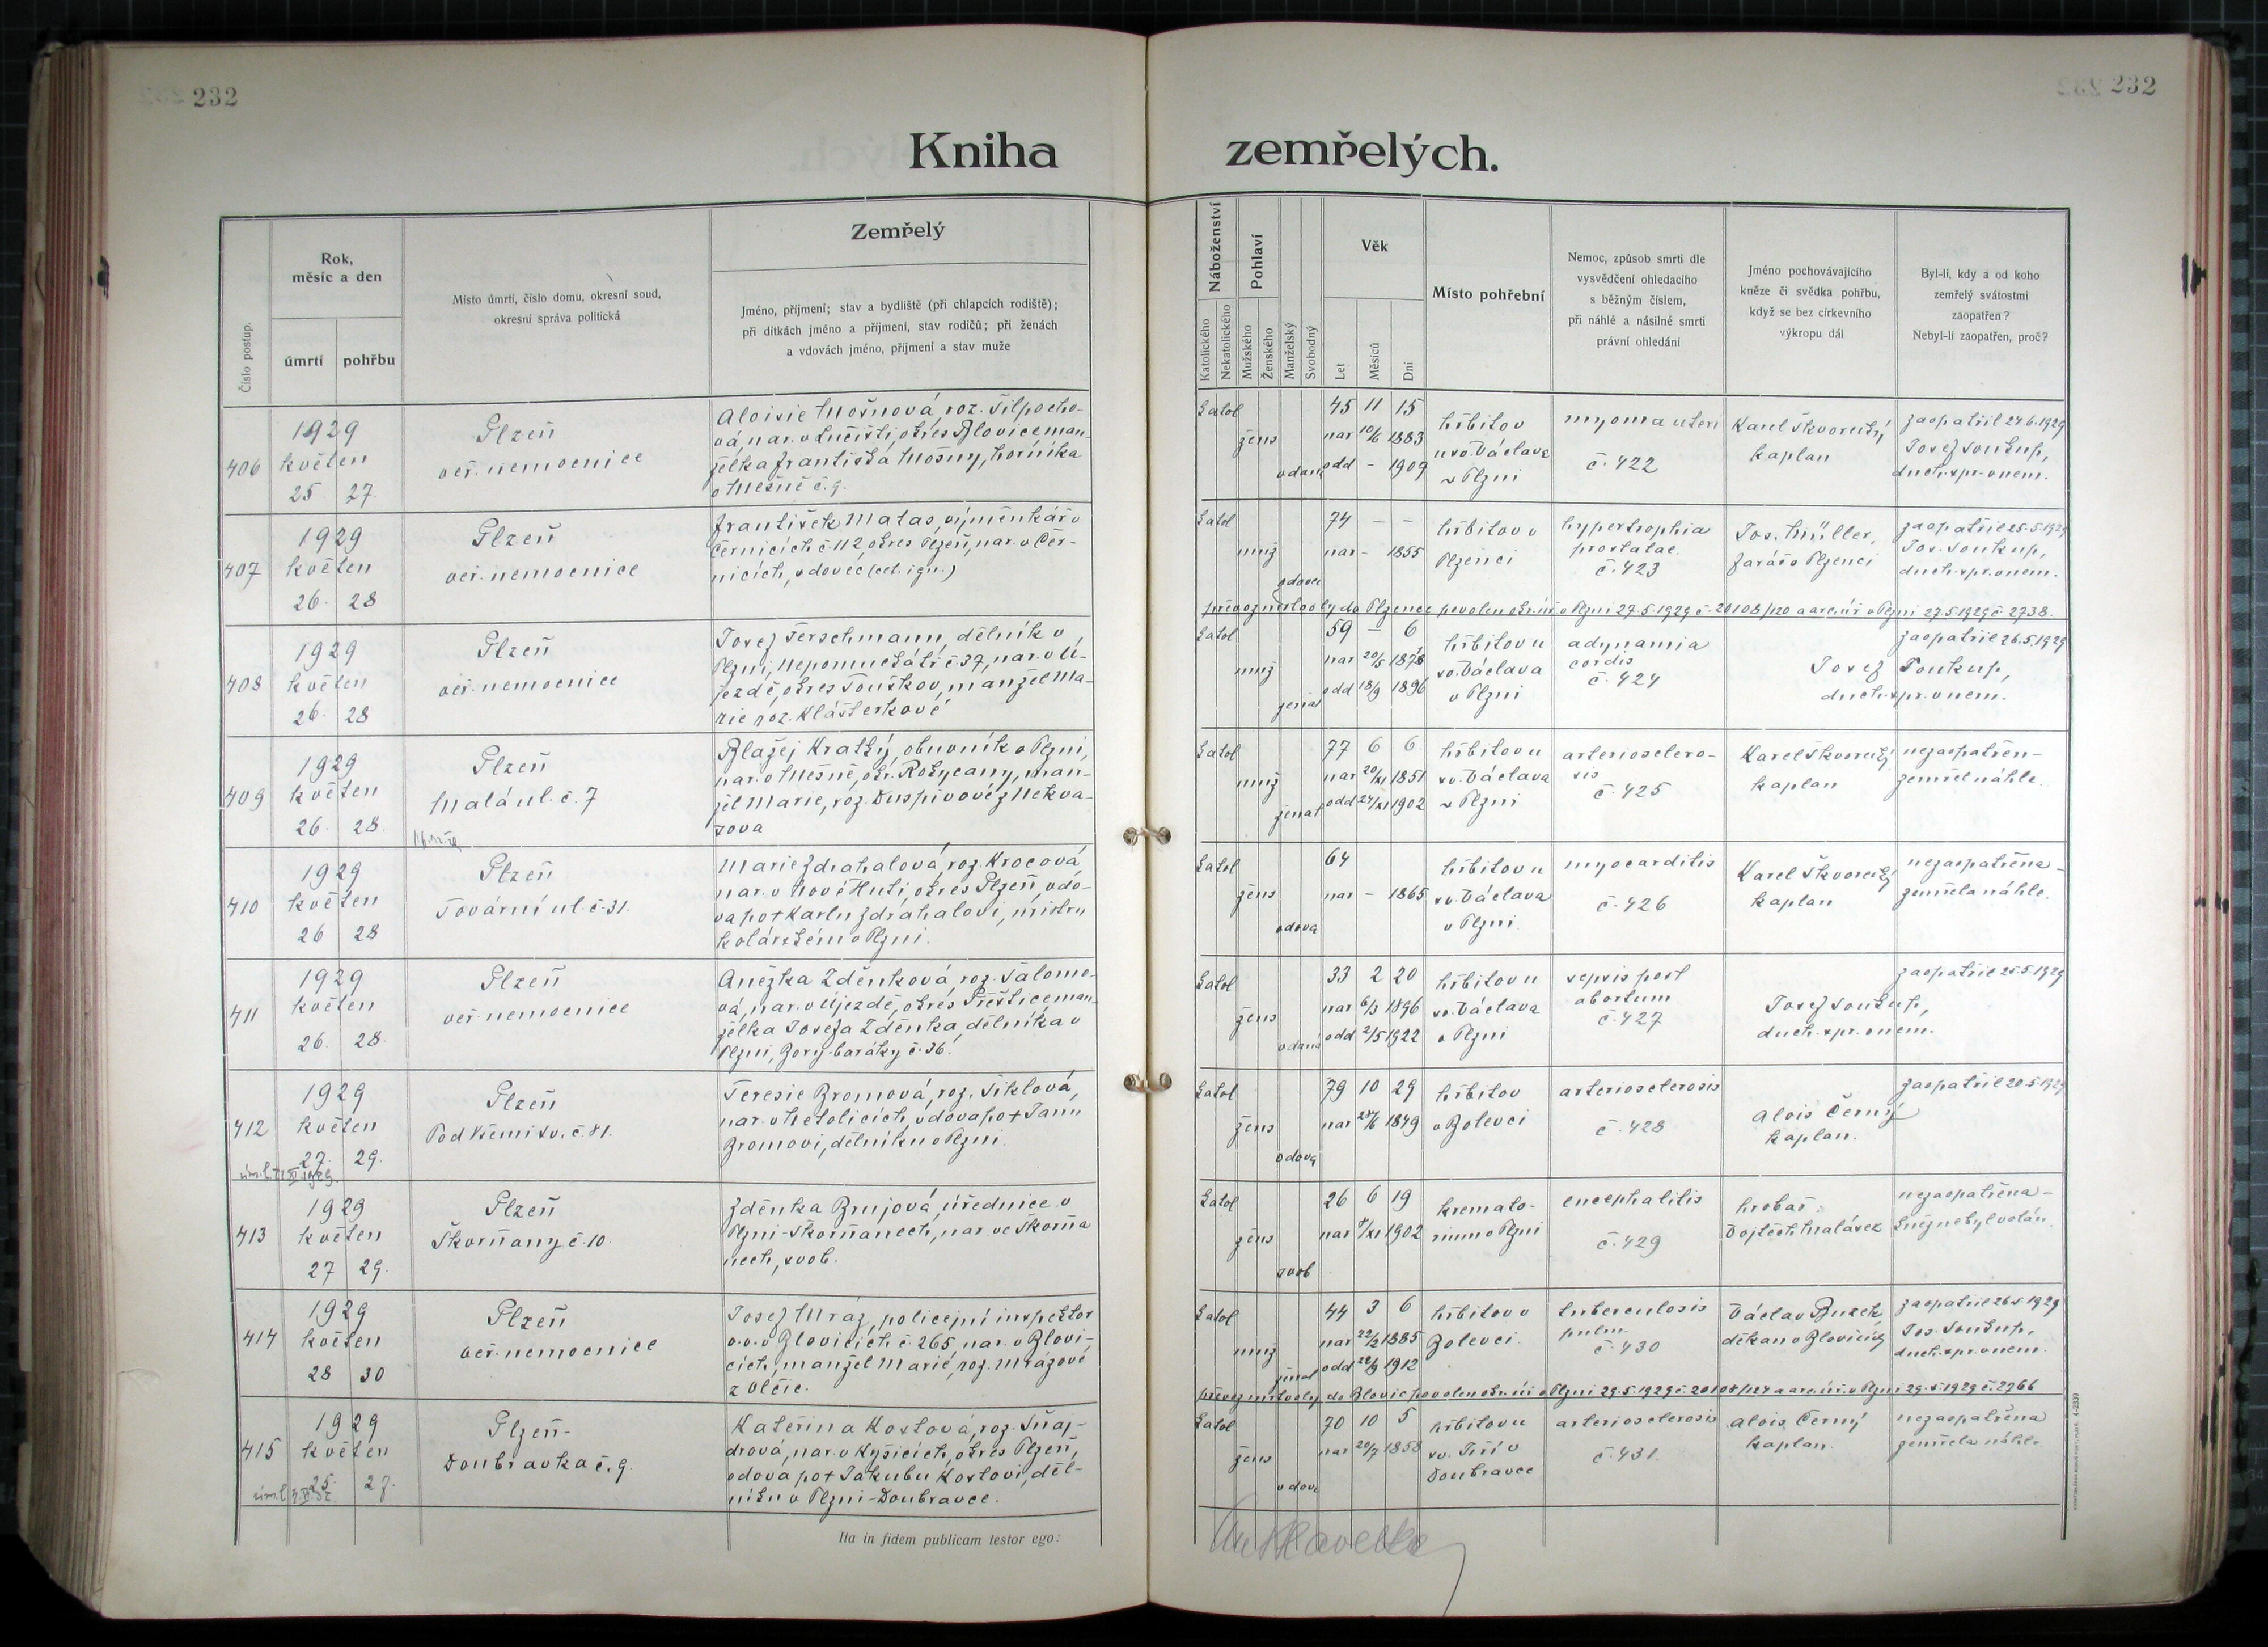 232
232
Kniha zemřelých.
Číslo postup.
Rok,
měsíc a den
úmrtí
pohřbu
Místo úmrtí, číslo domu, okresní soud,
okresní správa politická
Zemřelý
Jméno, příjmení; stav a bydliště (při chlapcích rodiště);
při dítkách jméno a příjmení, stav rodičů; při ženách
a vdovách jméno, příjmení a stav muže
Náboženství
Katolického
Nekatolického
Pohlaví
Mužského
Ženského
Manželský
Svobodný
Věk
Let
Měsíců
Dní
Místo pohřební
Nemoc, způsob smrti dle
vysvědčení ohledacího
s běžným číslem,
při náhlé a násilné smrti
právní ohledání
Jméno pochovávajícího
kněze či svědka pohřbu,
když se bez církevního
výkropu dál
Byl-li, kdy a od koho
zemřelý svátostmi
zaopatřen?
Nebyl-li zaopatřen, proč?
406
1929
květen
25 27.
Plzeň
veř. nemocnice
Aloisie Mošnová, roz. Šilpocho-
vá, nar. v Lučišti, okres Blovice man-
želka Františka Mošny, horníka
v Mešně č. 9.
katol
žens
vdaná
45 11 15
nar 10/6 1883
odd - 1909
hřbitov
u sv. Václava
v Plzni
myoma uteri
č. 422
Karel Škvorecký
kaplan
zaopatřil 24.6.1929
Josef Soukup,
duch. spr. v nem.
407
1929
květen
26. 28
Plzeň
veř. nemocnice
František Matas, výměnkář v
Černicích č. 112, okres Plzeň, nar. v Čer-
nicích, vdovec (cet. ign.)
katol
muž
vdovec
74 - -
nar - 1855
hřbitov v
Plzenci
hypertrophia
prostatae
č. 423
Jos. Müller,
farář v Plzenci
zaopatřil 25.5.1929
Jos. Soukup,
duch. spr. v nem.
převoz mrtvoly do Plzence povolen okr. úř. v Plzni 27.5.1929 č. 20108/120 a arc. úř. v Plzni 27.5.1929 č. 2738.
408
1929
květen
26. 28
Plzeň
veř. nemocnice
Josef Terschmann, dělník v
Plzni, Nepomucká tř. č. 37, nar. v Ú-
jezdě, okres Touškov, manžel Ma-
rie roz. Klášterkové
katol
muž
ženat
59 - 6
odd 18/9 1896
hřbitov u
sv. Václava
v Plzni
adynamia
cordis
č. 424
zaopatřil 26.5.1929
Josef Soukup,
duch. spr. v nem.
409
1929
květen
26. 28.
Plzeň
Malá ul. č. 7
Blažej Kratký, obuvník v Plzni,
nar. v Mešně, okr. Rokycany, man-
žel Marie, roz. Duspivové z Nekva-
sova
katol
muž
ženat
77 6 6.
nar 20/XI 1851
odd 24/XI 1902
hřbitov u
sv. Václava
v Plzni
arteriosclero-
sis
č. 425
Karel Škvorecký
kaplan
nezaopatřen-
zemřel náhle
410
1929
květen
26 28
Plzeň
Tovární ul. č. 31.
Marie Zdrahalová, roz. Krocová
nar. v Nové Huti, okres Plzeň, vdo-
va po † Karlu Zdrahalovi, mistru
kolářském v Plzni.
katol
žens
vdova
64
nar - 1865
hřbitov u
sv. Václava
v Plzni
myocarditis
č. 426
Karel Škvorecký
kaplan
nezaopatřena -
zemřela náhle.
411
1929
květen
26. 28.
Plzeň
veř. nemocnice
Anežka Zděnková, roz. Šalomo-
vá, nar. v Újezdě, okres Přeštice man-
želka Josefa Zděnka, dělníka v
Plzni, Bory-baráky č. 36.
katol
žens
vdaná
33 2 20
nar 6/3 1896
odd 2/5 1922
hřbitov u
sv. Václava
v Plzni
sepsis post
abortum
č. 427
zaopatřil 25.5.1929
Josef Soukup,
duch. spr. v nem.
412
1929
květen
27. 29.
Plzeň
Pod Všemi sv. č. 81.
Teresie Bromová, roz. Šiklová,
nar. v Netolicích, vdova po † Janu
Bromovi, dělníku v Plzni.
katol
žens
vdova
79 10 29
nar 28/6 1849
hřbitov
v Bolevci
arteriosclerosis
č. 428
Alois Černý
kaplan.
zaopatřil 20.5.1929
413
1929
květen
27 29.
Plzeň
Škorňany č. 10.
Zděnka Brujová, úřednice v
Plzni-Škorňanech, nar. ve Škorňa
nech, svob.
katol
žens
svob
26 6 19
nar 8/XI 1902
kremato-
rium v Plzni
encephalitis
č. 429
hrobař:
Vojtěch Malásek
nezaopatřena -
kněz nebyl volán.
414
1929
květen
28 30
Plzeň
veř. nemocnice
Josef Mráz, policejní inspektor
v. v. v Blovicích č. 265, nar. v Blovi-
cích, manžel Marie, roz. Mrázové
z Vlčic.
katol
muž
ženat
44 3 6
nar 22/2 1885
odd 28/9 1912
hřbitov v
Bolevci.
tuberculosis
pulm.
č. 430
Václav Buzek,
děkan v Blovicích
zaopatřil 26.5.1929
Jos. Soukup,
duch. spr. v nem.
převoz mrtvoly do Blovic povolen okr. úř. v Plzni 29.5.1929 č. 20108/124 a arc. úř. v Plzni 29.5.1929 č. 2766
415
1929
květen
25. 27.
Plzeň-
Doubravka č. 9.
Kateřina Kostová, roz. Šnaj-
drová, nar. v Kyšicích, okres Plzeň,
vdova po † Jakubu Kostovi, děl-
níku v Plzni-Doubravce.
katol
žens
vdova
70 10 5
nar 20/7 1858
hřbitov u
sv. Jiří v
Doubravce
arteriosclerosis
č. 431.
Alois Černý
kaplan.
nezaopatřena
zemřela náhle.
Ita in fidem publicam testor ego: